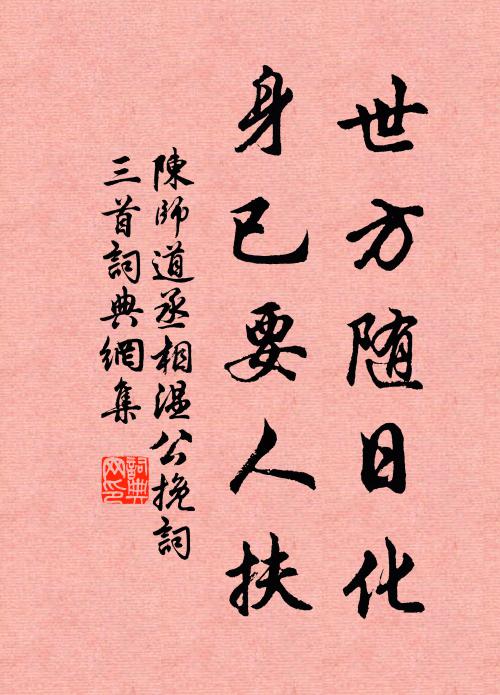 世方随日化
身已要人扶
陳師道丞相温公挽詞
三首詞典網集
詞典
网印